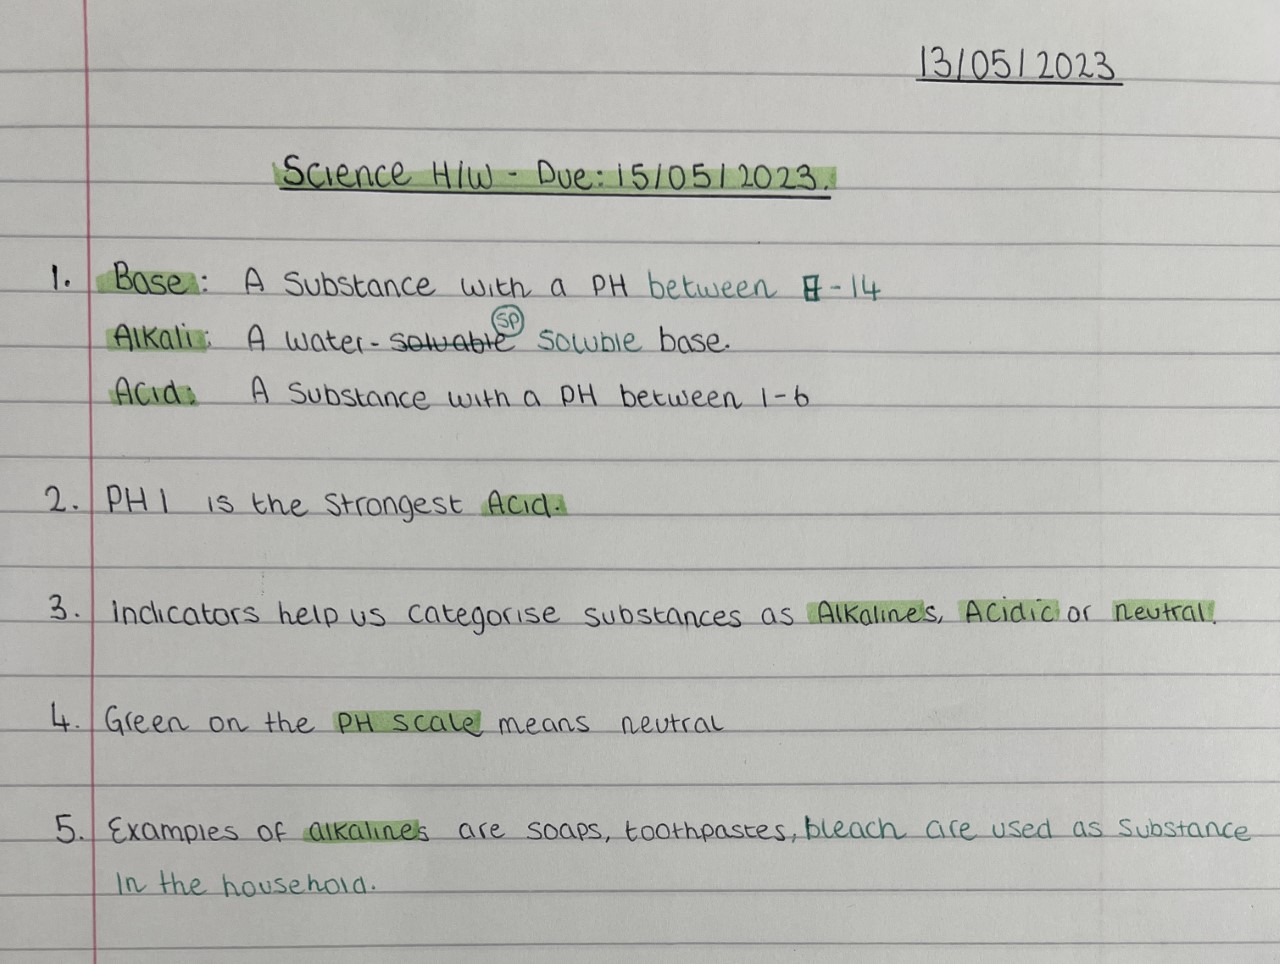 13/05/2023
Science H/W - Due: 15/05/2023.
1. Base: A Substance with a PH between 8-14
Alkali: A water- soluable SP soluble base.
Acid: A Substance with a PH between 1-6
2. PH 1 is the Strongest Acid.
3. Indicators help us categorise substances as Alkalines, Acidic or neutral.
4. Green on the PH scale means neutral
5. Examples of alkalines are soaps, toothpastes, bleach are used as Substance
in the household.